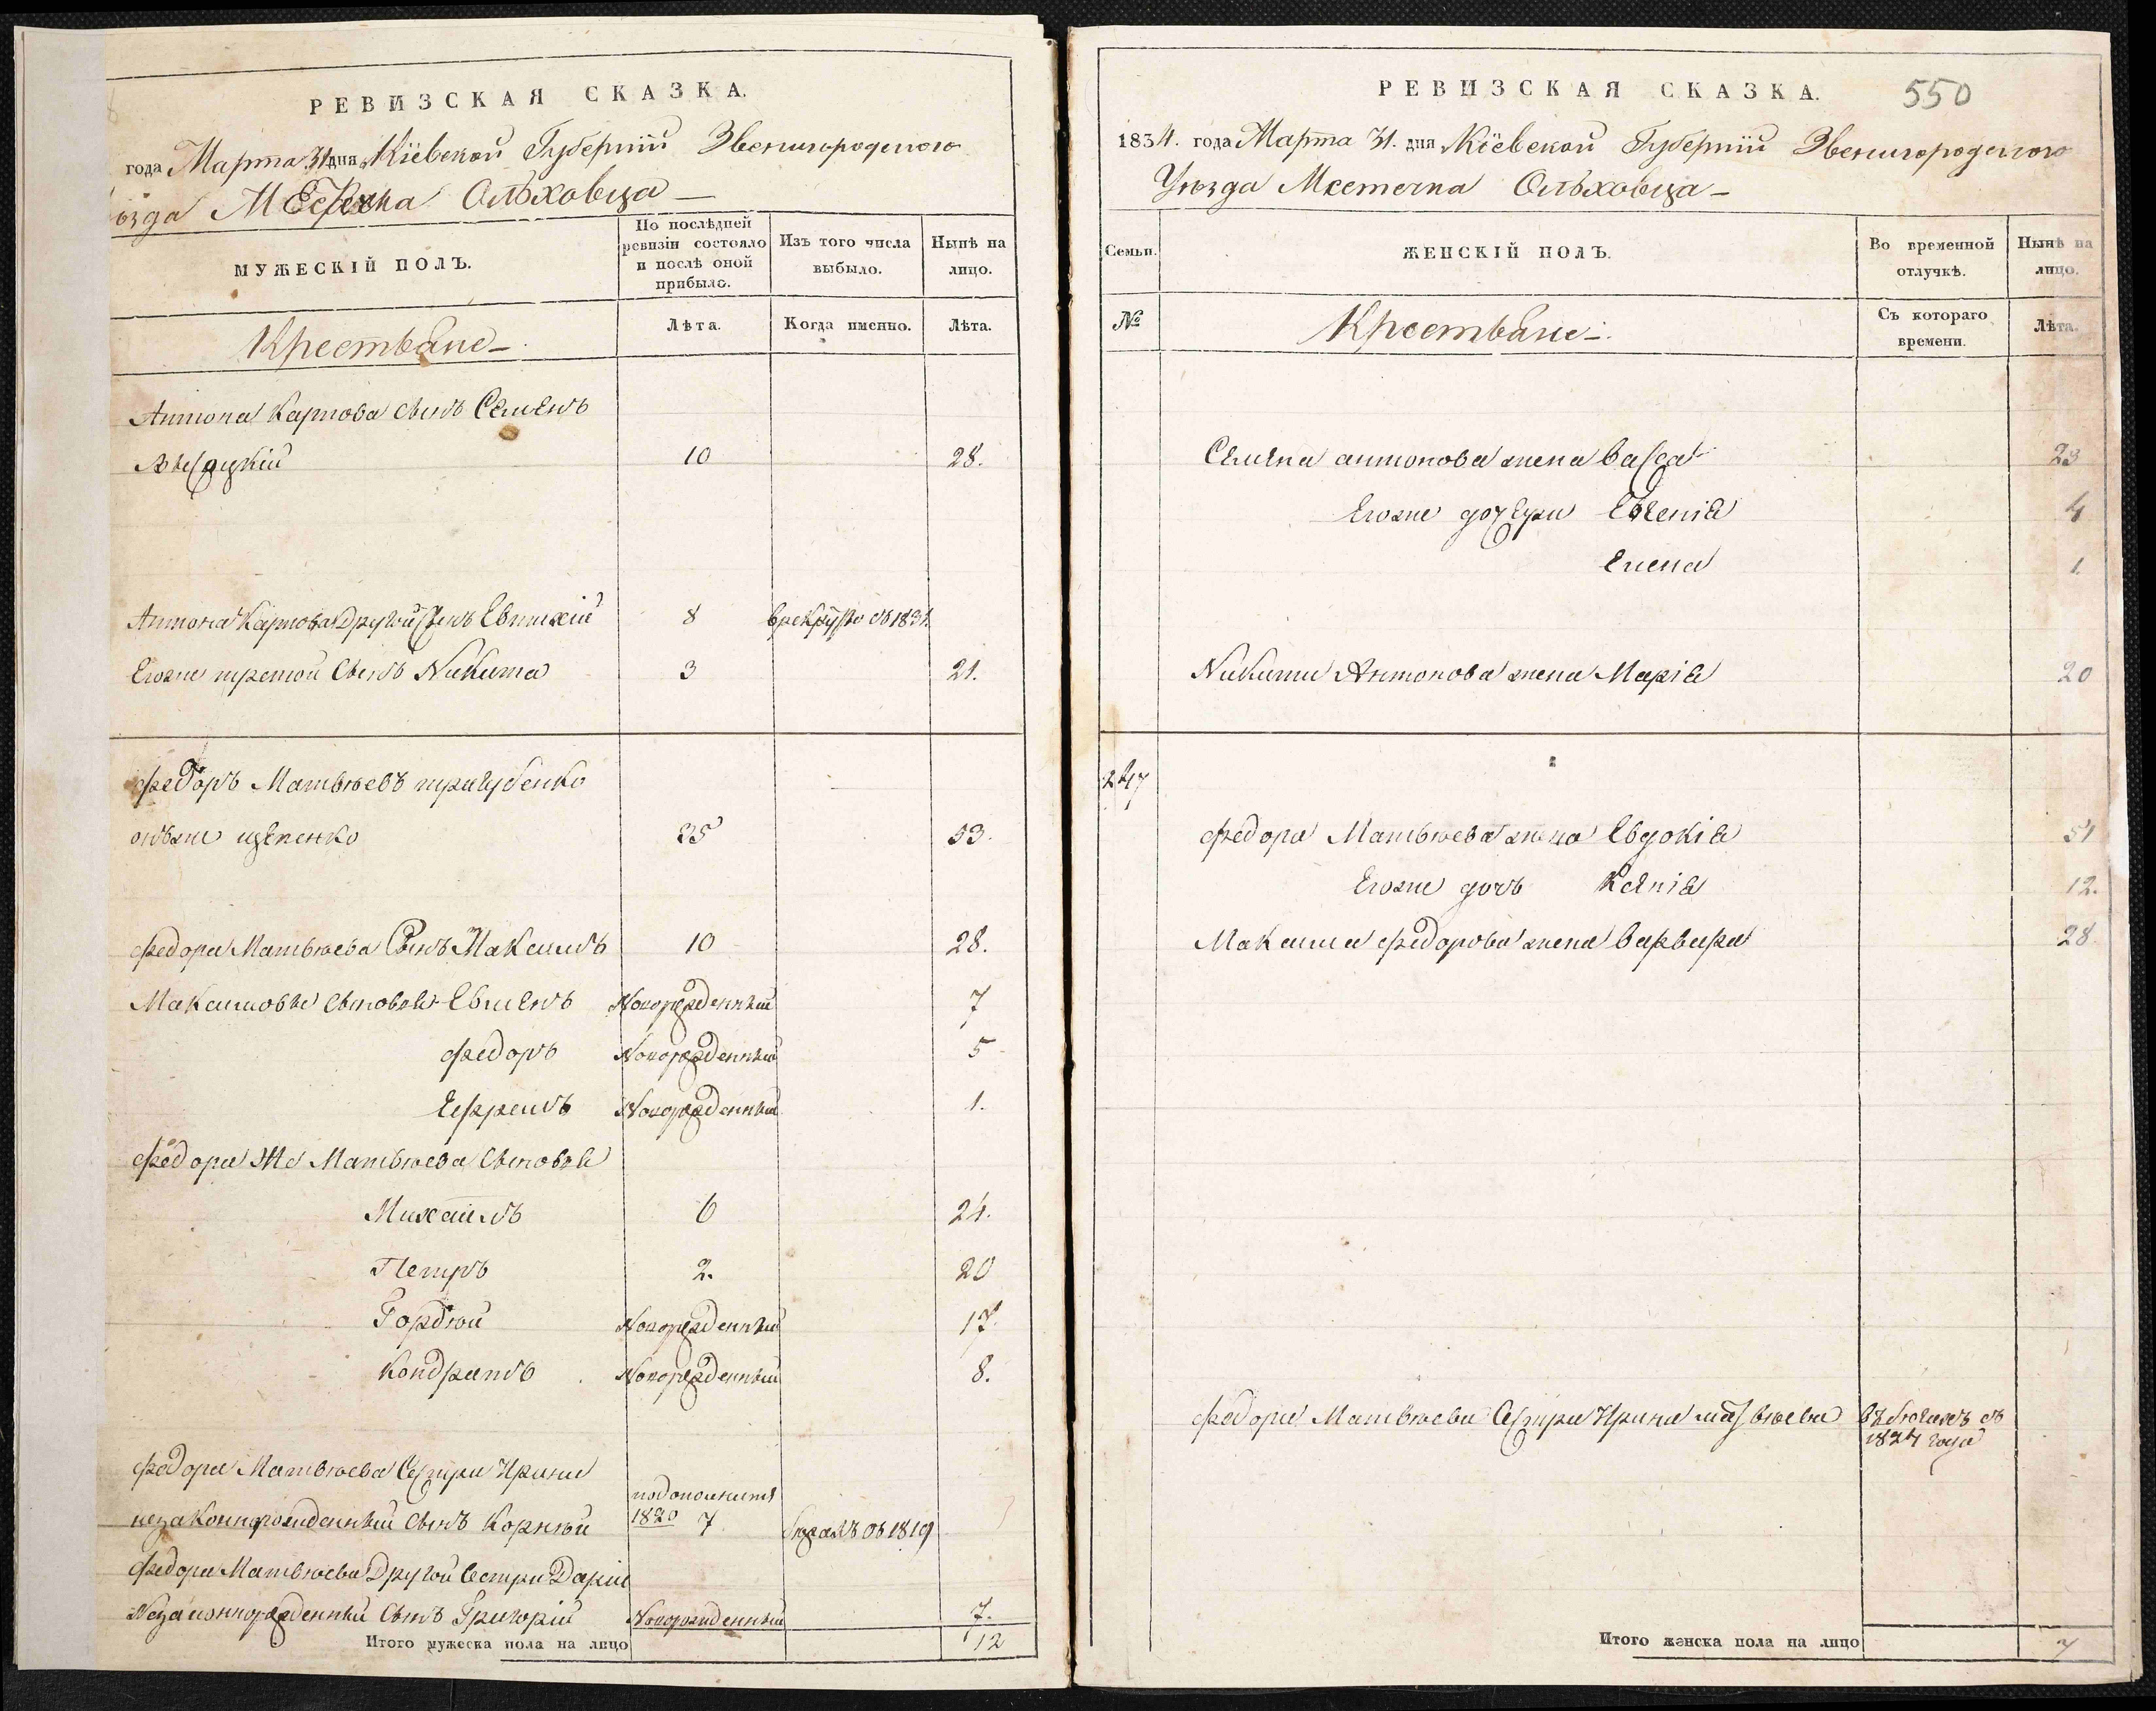 РЕВИЗСКАЯ СКАЗКА.
года Марта 31 дня Кіевской Губерніи Звенигородского
ѣзда Местечка Ольховца
МУЖЕСКІЙ ПОЛЪ.
По послѣдней ревизіи состояло и послѣ оной прибыло.
Изъ того числа выбыло.
Нынѣ на лицо.
Крестьяне
Лѣта.
Когда именно.
Лѣта.
Антона Карпова сынъ Семенъ
10 28.
Антона Карпова Другой Сынъ Евтихій 8 врекруты съ 1831.
Егоже третой Сынъ Никита 3 21.
Федоръ Матвѣевъ тригубенко
онъже щепенко 35 53.
Федора Матвѣева Сынъ Максимъ 10 28.
Максимовы сыновья Евменъ Новорожденный 7
Федоръ Новорожденный 5
Ефремъ Новорожденный 1.
Федора Же Матвѣева Сыновья
Михаилъ 6 24.
Петръ 2. 20
Гордѣй Новорожденный 17.
Кондратъ Новорожденный 8.
Федора Матвѣева Сестры Ирины
незаконнорожденный сынъ Корнѣй
1820 7 съ 1819
Федора Матвѣева Другой Сестры Даріи
Незаконнорожденный Сынъ Григорій Новорожденный 7.
Итого мужеска пола на лицо 12
РЕВИЗСКАЯ СКАЗКА. 550
1834. года Марта 31. дня Кіевской Губерніи Звенигородского
Уѣзда Местечка Ольховца
Семьи.
ЖЕНСКІЙ ПОЛЪ.
Во временной отлучкѣ.
Нынѣ на лицо.
№
Крестьяне
Съ котораго времени.
Лѣта.
Семена антонова жена васса 23
Егоже дочери Евгенія 4
Елена 1.
Никиты Антонова жена Марія 20
Федора Матвѣева жена Евдокія 51
Егоже дочь Ксенія 12.
Максима федорова жена варвара 28
Федора Матвѣева Сестра Ирина матвѣева въ бѣгахъ съ
1827 года
Итого женска пола на лицо 7